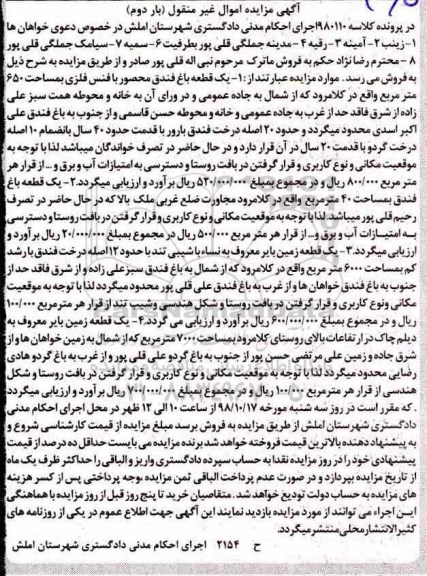 آگهی مزایده اموال غیر منقول (بار دوم)
در پرونده کلاسه ۹۸۰۱۱۰اجرای احکام مدنی دادگستری شهرستان املش در خصوص دعوی خواهان ها
۱-زینب ۲- آمینه ۳- رقیه ۴- مدینه جملگی قلی پور بطرفیت ۶- سمیه ۷- سیامک جملگی قلی پور
۸- محترم رضا نژاد حکم به فروش ماترک مرحوم نبی اله قلی پور صادر و از طریق مزایده به شرح ذیل
به فروش می رسد . موارد مزایده عبارتند از : ۱-یک قطعه باغ فندق محصور با فنس فلزی بمساحت ۶۵۰
متر مربع واقع در کلامرود که از شمال به جاده عمومی و در ورای آن به خانه و محوطه همت سبز علی
زاده از شرق فاقد حد از غرب به جاده عمومی و خانه و محوطه حسن قاسمی و از جنوب به باغ فندق علی
اکبر اسدی محدود میگردد و حدود ۲۰ اصله درخت فندق بارور با قدمت حدود ۴۰ سال بانضمام ۱۰ اصله
درخت گردو با قدمت ۲۰ سال در آن قرار دارد و در حال حاضر در تصرف خواندگان میباشد لذا با توجه به
موقعیت مکانی و نوع کاربری و قرار گرفتن در بافت روستا و دسترسی به امتیازات آب و برق و... از قرار هر
متر مربع ۸۰۰/۰۰۰ ریال و در مجموع بمبلغ ۵۲۰/۰۰۰/۰۰۰ ریال بر آورد و ارزیابی میگردد.۲- یک قطعه باغ
فندق بمساحت ۴۰ مترمربع واقع در کلامرود مجاورت ضلع غربی ملک بالا که در حال حاضر در تصرف
رحیم قلی پور میباشد لذا با توجه به موقعیت مکانی و نوع کاربری و قرار گرفتن در بافت روستا و دسترسی
به امتیازات آب و برق و... از قرار هر متر مربع ۵۰۰/۰۰۰ ریال در مجموع بمبلغ ۲۰/۰۰۰/۰۰۰ ریال بر آورد و
ارزیابی میگردد. ۳- یک قطعه زمین بایر معروف به نساء با شیبی تند با حدود ۱۲ اصله درخت فندق با رشد
کم بمساحت ۶۰۰۰ متر مربع واقع در کلامرود که از شمال به باغ فندق سبز علی زاده و از شرق فاقد حد از
جنوب به باغ فندق خواهان ها و از غرب به باغ فندق علی قلی پور محدود میگردد لذا با توجه به موقعیت
مکانی ونوع کاربری و قرار گرفتن در بافت روستا و شکل هندسی وشیب تند از قرار هر متر مربع ۱۰۰/۰۰۰
ریال و در مجموع بمبلغ ۶۰۰/۰۰۰/۰۰۰ ریال بر آورد و ارزیابی می گردد.۴- یک قطعه زمین بایر معروف به
دیلم چاک در ارتفاعات بالای روستای کلامرود بمساحت ۷۰۰۰ متر مربع که از شمال به زمین خواهان ها و از
شرق جاده و زمین علی مرتضی حسن پور از جنوب به باغ گردو علی قلی پور و از غرب به باغ گردو هادی
رضایی محدود میگردد لذا با توجه به موقعیت مکانی و نوع کاربری و قرار گرفتن در بافت روستا و شکل
هندسی از قرار هر متر مربع ۱۰۰/۰۰۰ ریال و در مجموع بمبلغ ۷۰۰/۰۰۰/۰۰۰ ریال بر آورد و ارزیابی میگردد
. که مقرر است در روز سه شنبه مورخه ۹۸/۱۰/۱۷ از ساعت ۱۰ الی ۱۲ ظهر در محل اجرای احکام مدنی
دادگستری شهرستان املش از طریق مزایده به فروش برسد مبلغ مزایده از قیمت کارشناسی شروع و
به پیشنهاد دهنده بالاترین قیمت فروخته خواهد شد برنده مزایده می بایست حداقل ده درصد از قیمت
پیشنهادی خود را در روز مزایده نقدا به حساب سپرده دادگستری واریز و الباقی را حداکثر ظرف یک ماه
از تاریخ مزایده بپردازد و در صورت عدم پرداخت الباقی ثمن مزایده ،وجه پرداختی پس از کسر هزینه
های مزایده به حساب دولت تودیع خواهد شد. متقاضیان خرید تا پنج روز قبل از روز مزایده با هماهنگی
این اجراء می توانند از مورد مزایده بازدید نمایند این آگهی جهت اطلاع عموم در یکی از روزنامه های
کثیرالانتشار محلی منتشر میگردد.
ح ۲۱۵۴ اجرای احکام مدنی دادگستری شهرستان املش